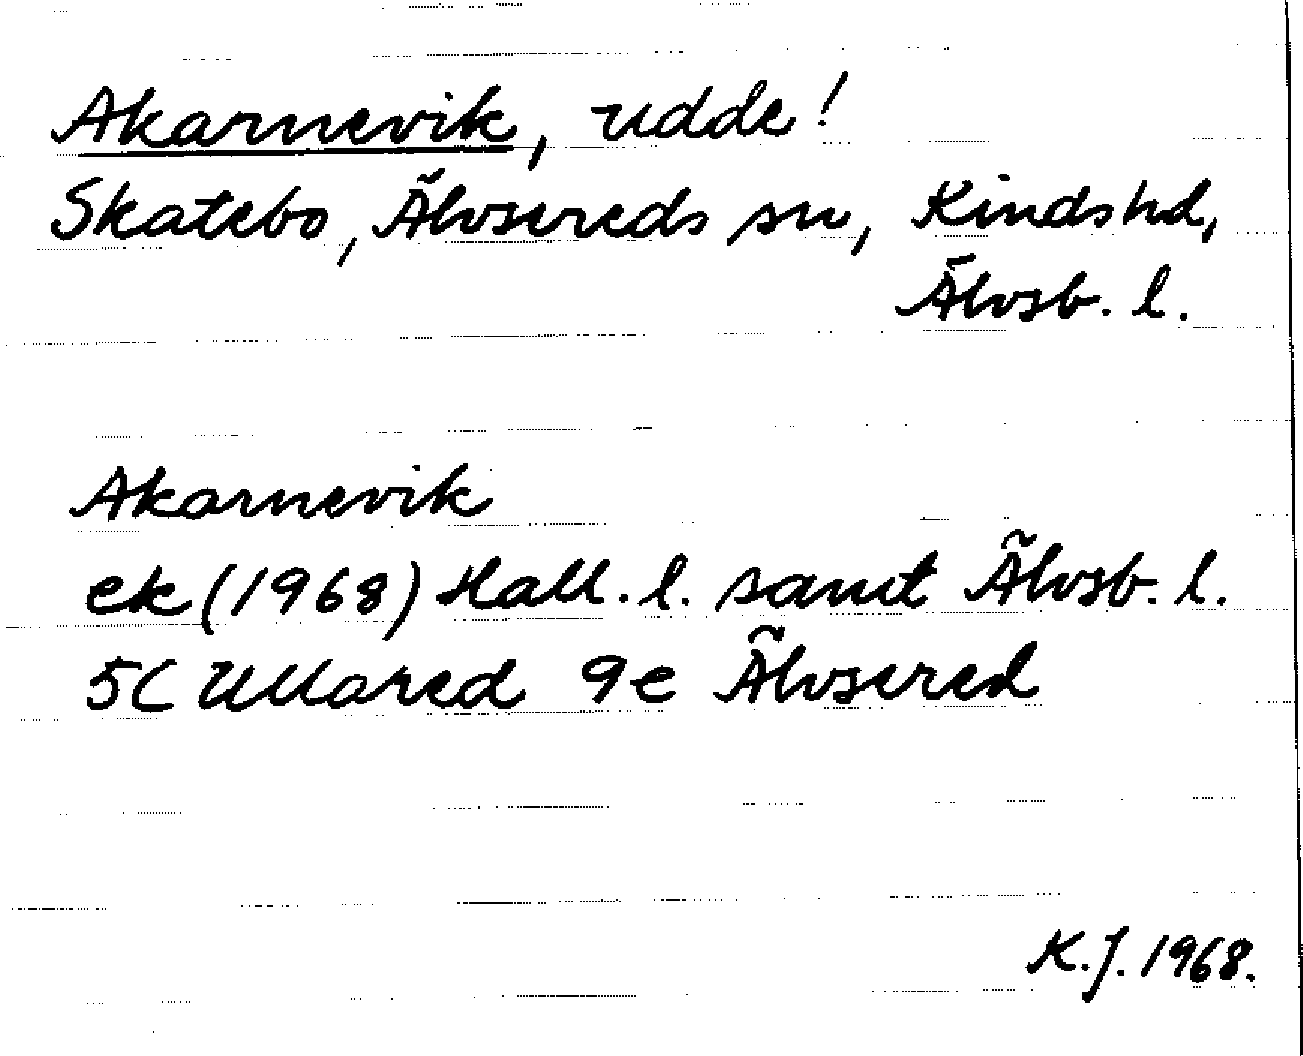 Akarnevik, udde!
Skatebo, Älvsereds sn, Kinds hd,
Älvsb. l.
Akarnevik
ek (1968) Hall. l. samt Älvsb. l.
5C Ullared 9e Älvsered
K.J. 1968.